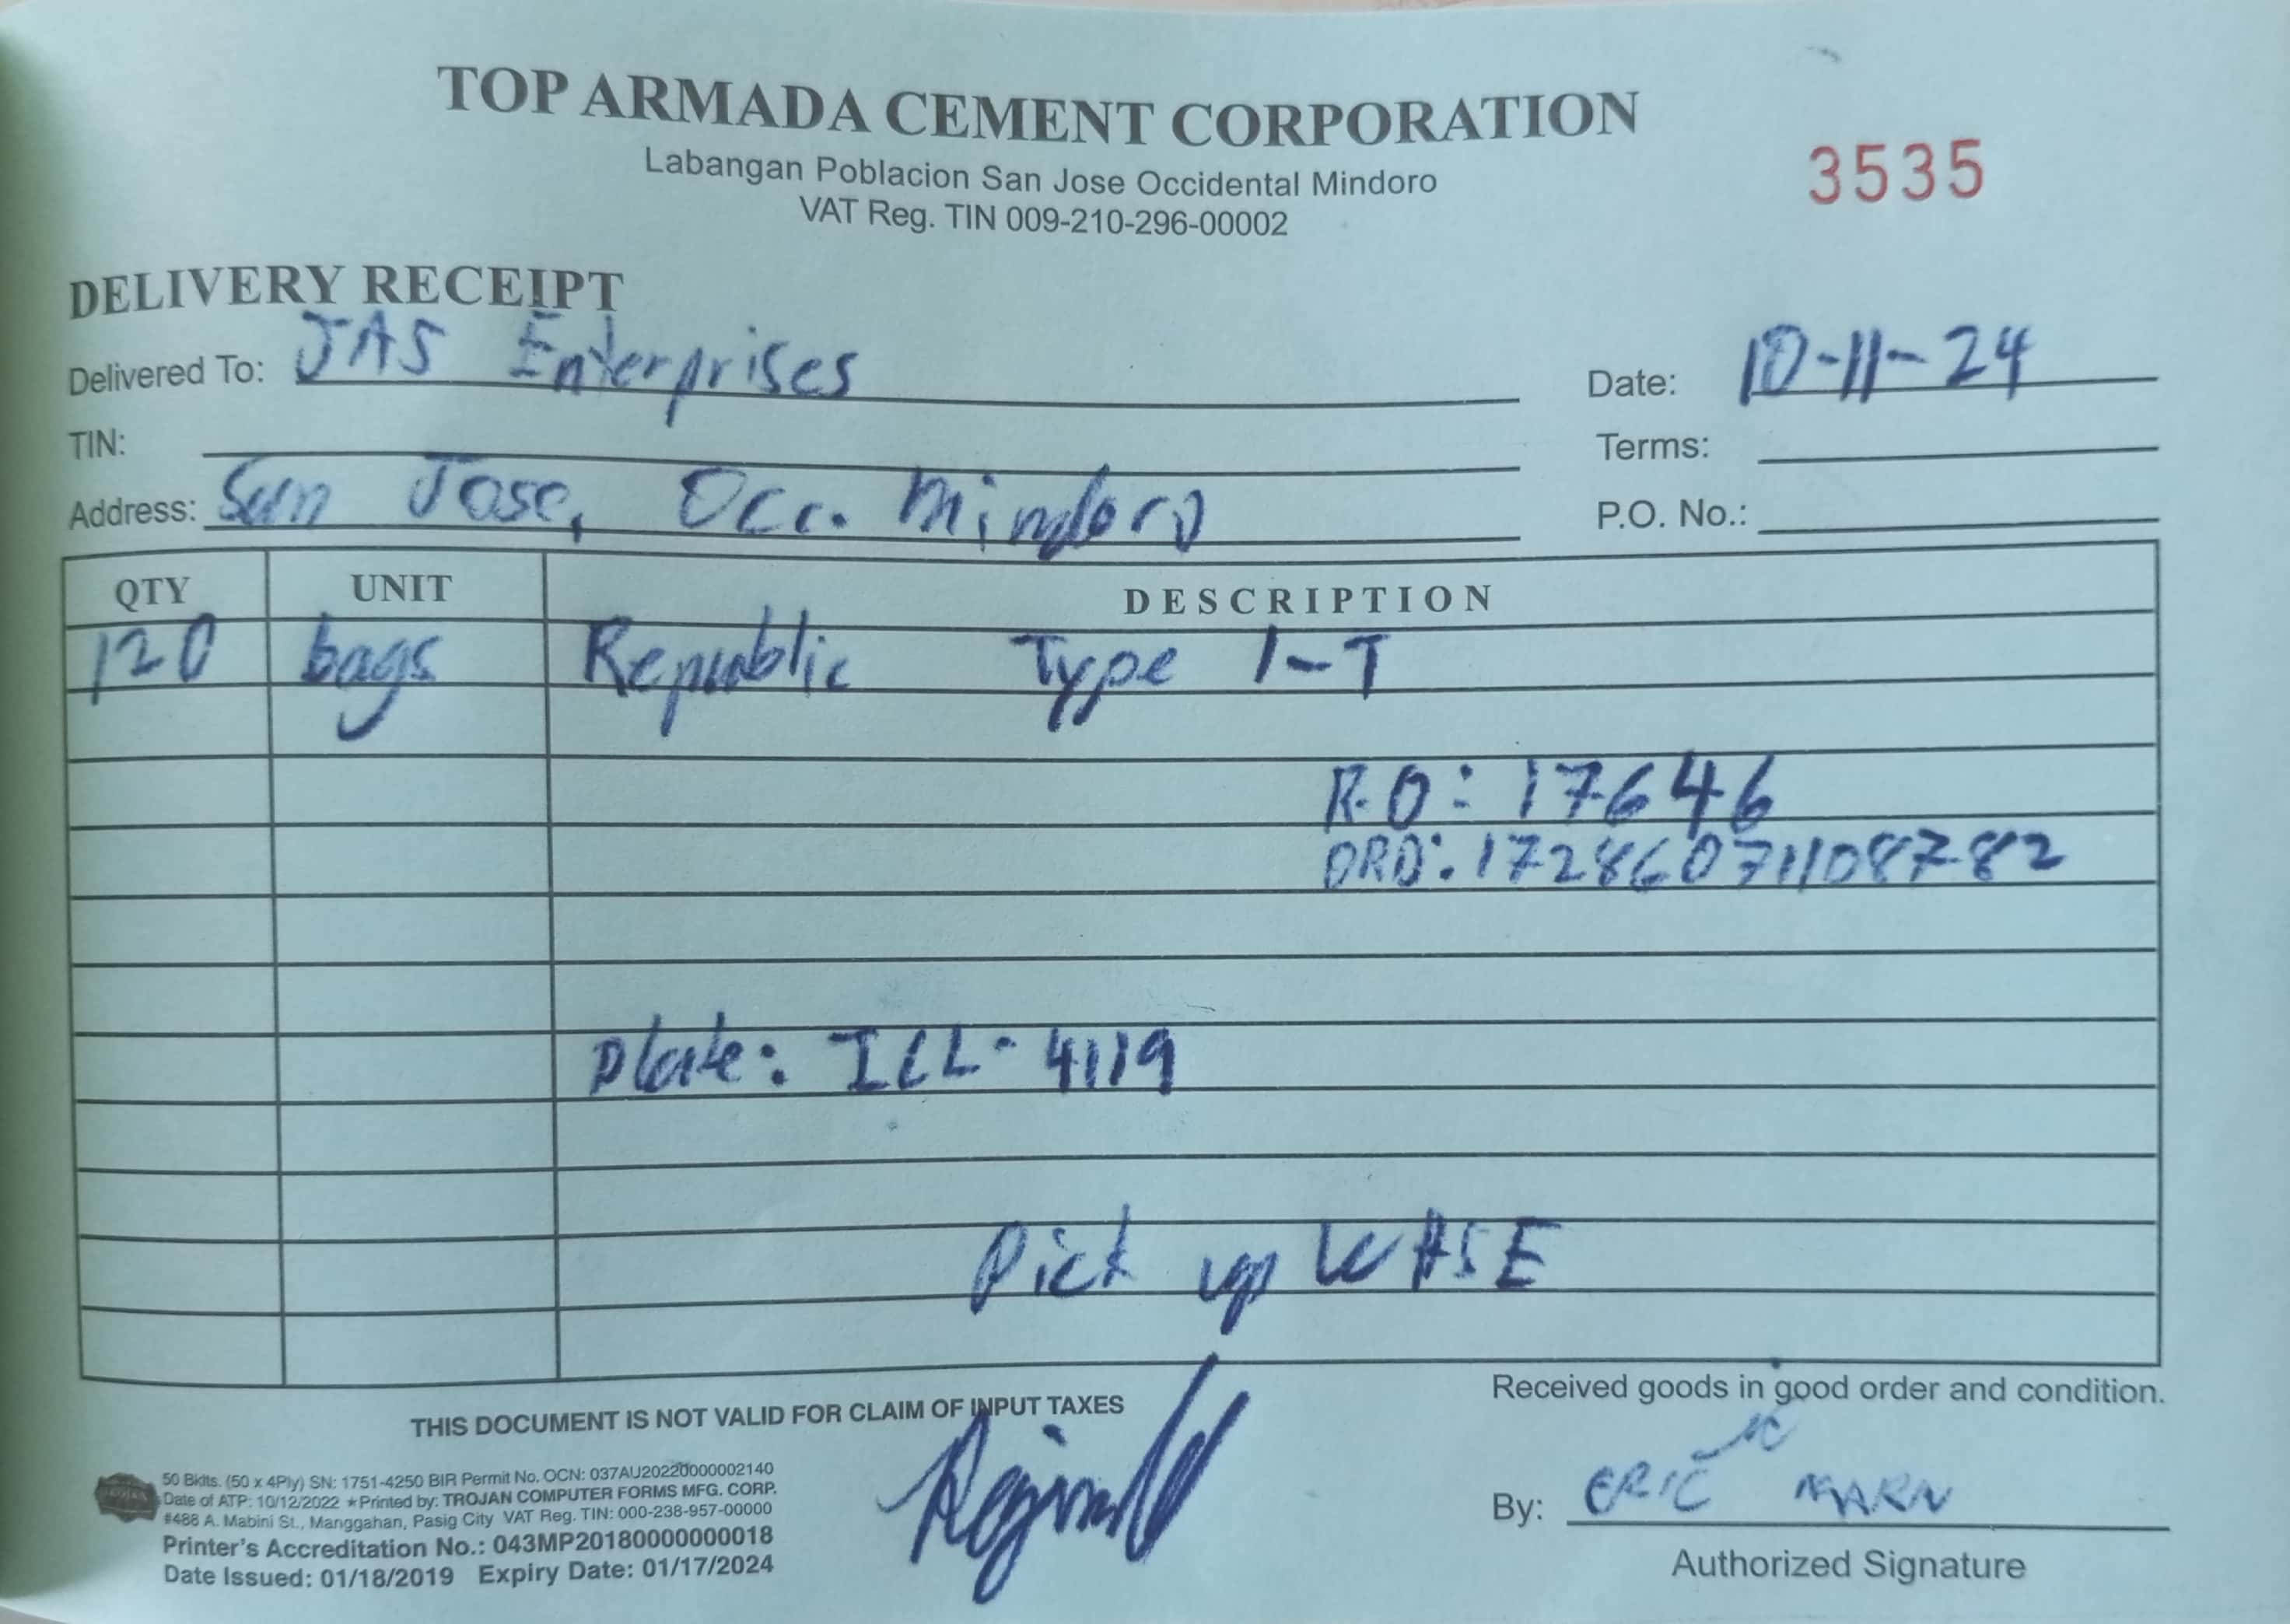 TOP ARMADA CEMENT CORPORATION
Labangan Poblacion San Jose Occidental Mindoro
VAT Reg. TIN 009-210-296-00002
3535
DELIVERY RECEIPT
Delivered To: JAS Enterprises
Date: 10-11-24
TIN:
Terms:
Address: San Jose, Occ. Mindoro
P.O. No.:
QTY UNIT DESCRIPTION
120 bags Republic Type 1-T
R.O: 17646
ORD: 17286071108782
Plate: ICL-4119
Pick up WHSE
THIS DOCUMENT IS NOT VALID FOR CLAIM OF INPUT TAXES
Received goods in good order and condition.
50 Bklts. (50 x 4Ply) SN: 1751-4250 BIR Permit No. OCN: 037AU20220000002140
Date of ATP: 10/12/2022 ★Printed by: TROJAN COMPUTER FORMS MFG. CORP.
#488 A. Mabini St., Manggahan, Pasig City VAT Reg. TIN: 000-238-957-00000
Printer's Accreditation No.: 043MP20180000000018
Date Issued: 01/18/2019 Expiry Date: 01/17/2024
By: ERIC MARN
Authorized Signature